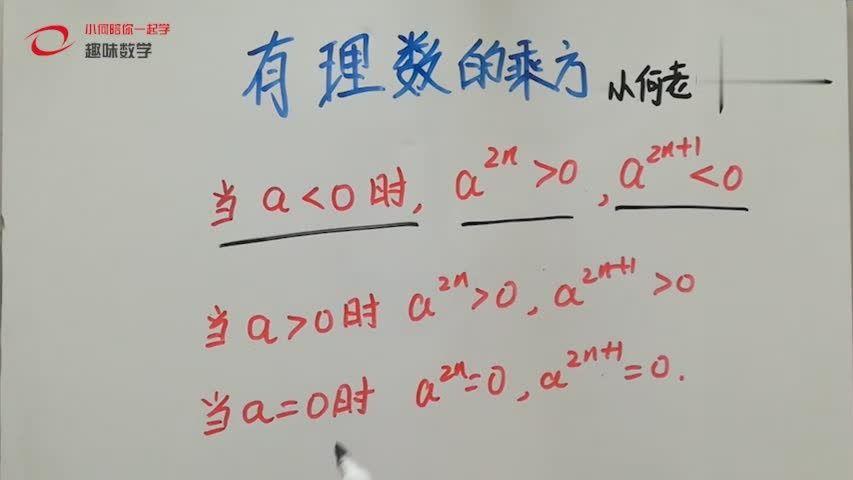 小何陪你一起学
趣味数学
有理数的乘方 从何老
当 a<0 时, a²ⁿ>0, a²ⁿ⁺¹<0
当 a>0 时 a²ⁿ>0, a²ⁿ⁺¹>0
当 a=0 时 a²ⁿ=0, a²ⁿ⁺¹=0.